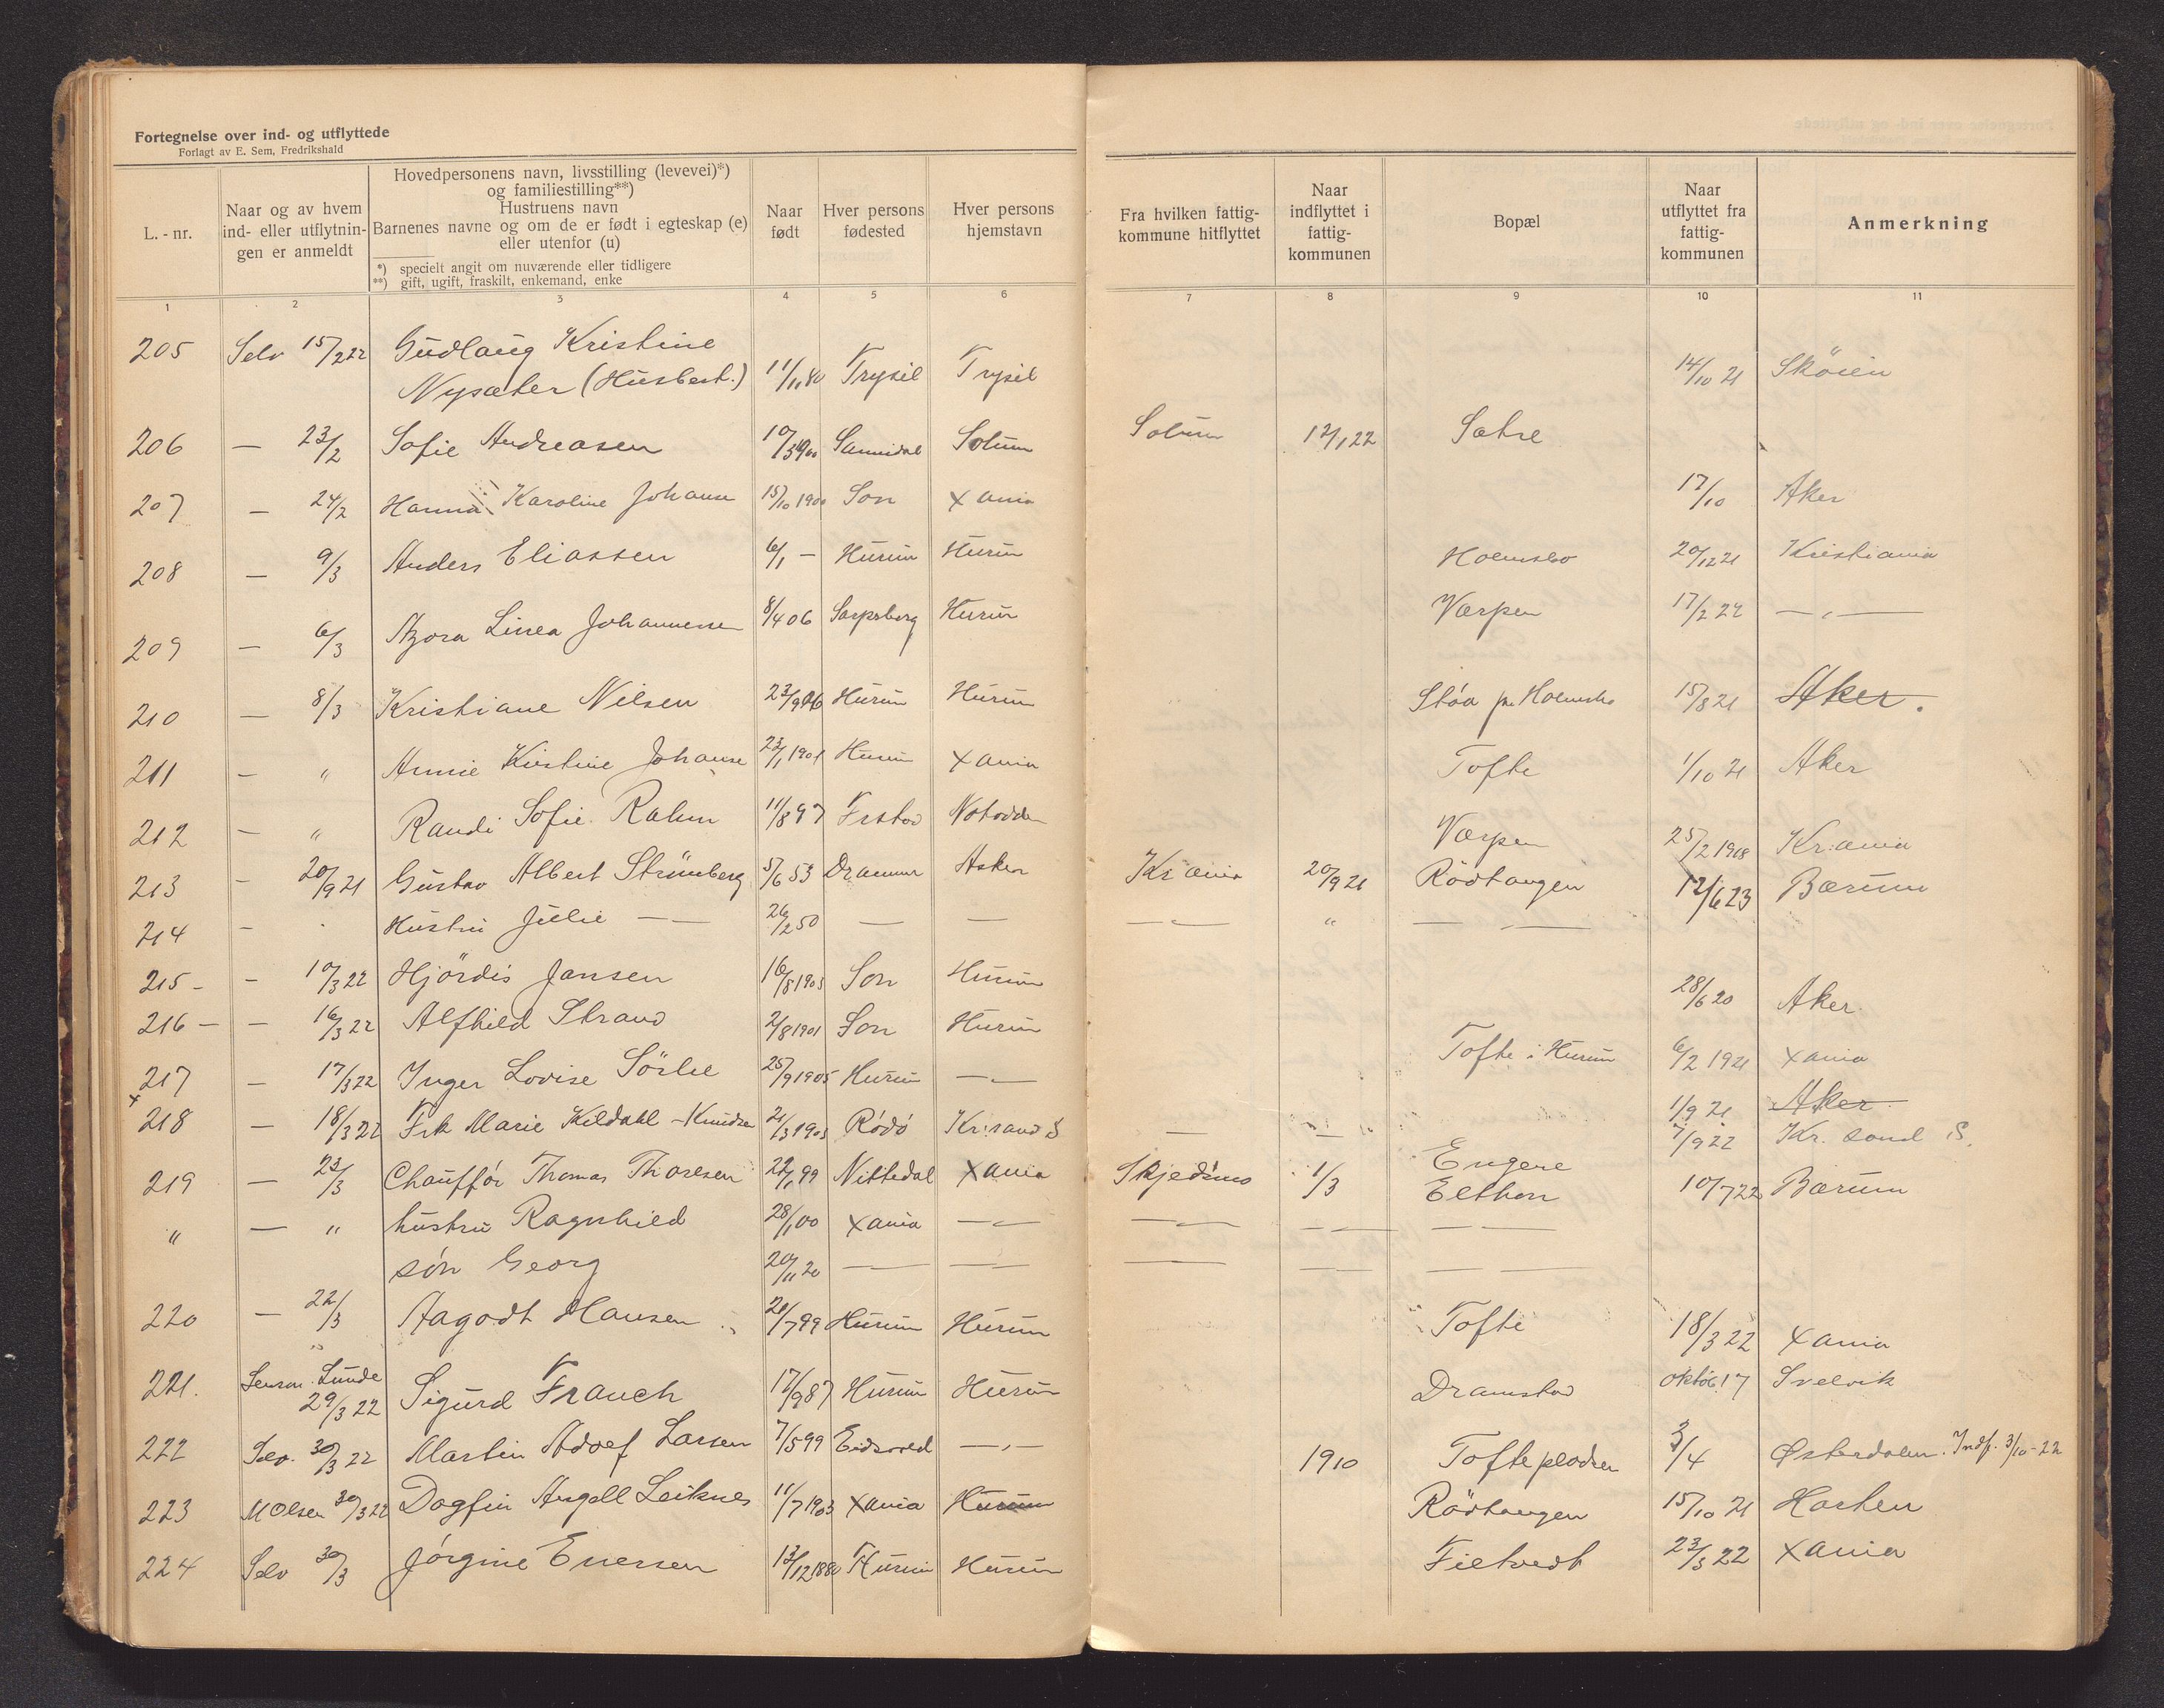 Fortegnelse over ind- og utflyttede
Forlagt av E. Sem, Fredrikshald
L.-nr.
Naar og av hvem ind- eller utflytningen er anmeldt
Hovedpersonens navn, livsstilling (levevei)*) og familiestilling**)
Hustruens navn
Barnenes navne og om de er født i egteskap (e) eller utenfor (u)
*) specielt angit om nuværende eller tidligere
**) gift, ugift, fraskilt, enkemand, enke
Naar født
Hver persons fødested
Hver persons hjemstavn
Fra hvilken fattigkommune hitflyttet
Naar indflyttet i fattigkommunen
Bopæl
Naar utflyttet fra fattigkommunen
Anmerkning
1 2 3 4 5 6 7 8 9 10 11
205 Selv 15/2 22 Gudlaug Kristine
Nysæter (Husbest.) 11/11 80 Trysil Trysil 14/10 21 Sköien
206 — 23/2 Sofie Andreasen 10/3 900 Sannidal Solum Solum 12/1 22 Sætre
207 — 24/2 Hanna Karoline Johanse 15/10 1900 Son Xania 17/10 Aker
208 — 9/3 Anders Eliassen 6/1 — Hurum Hurum Holmsbo 20/12 21 Kristiania
209 — 6/3 Linea Johannesse 8/4 06 Sarpsborg Hurum Værpen 17/2 22 — „ —
210 — 8/3 Kristiane Nilsen 23/9 Hurum Hurum Støa pr. Holmsbo 15/8 21 Aker.
211 — „ Annie Kirstine Johanse 23/1 1901 Hurum Xania Tofte 1/10 21 Aker
212 — „ Randi Sofie Rahm 11/8 97 Notodden Værpen 25/2 1918 Kr.ania
213 — 20/9 21 Gustav Albert Strümberg 5/6 53 Drammen Asker Kr ania 20/9 21 Rödtangen 12/6 23 Bærum
214 — Hustru Julie — — 26/2 50 — — — „ — „ — —
215 — — 10/3 22 Hjördis Jansen 16/8 1905 Son Hurum 28/6 20 Aker
216 — — 16/3 22 Alfhild Strand 2/8 1901 Son Hurum Tofte i Hurum 6/2 1921 Xania
217 — 17/3 22 Inger Lovise Sörlie 25/9 1905 Hurum — „ — 1/9 21 Aker
x
218 — 18/3 22 Frk Marie Kildahl-Knudsen 21/3 1905 Rödö Kr.sand S — — 7/9 22 Kr. sand S.
219 — 23/3 Chauffør Thomas Thoresen 22/1 99 Nittedal Xania Skjedsmo 1/3 Engene
Elthon 10/7 22 Bærum
„ — „ hustru Ragnhild 28/1 00 Xania — „ — — „ — — „ — — —
søn Georg 20/11 20 — — — — — —
220 — 22/3 Aagodt Hansen 20/7 99 Hurum Hurum Tofte 18/3 22 Xania
221. Lensm. Lunde
29/3 22 Sigurd Franch 17/9 87 Hurum Hurum Dramstad 17 Svelvik
222 Selv. 30/3 22 Martin Adolf Larsen 7/5 99 Eidsvold — „ — 1910 Tofte pladsen 3/4 Østerdalen. Indf. 3/10-22
223 M Olsen 30/3 22 Dagfin Angell Leiknes 11/7 1903 Xania Hurum Rödtangen 15/10 21 Horten
224 Selv 30/3 Jørgine Enersen 13/12 1880 Hurum Hurum Filtvedt 23/3 22 Xania